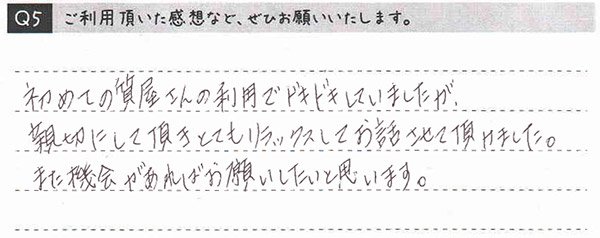 Q5 ご利用頂いた感想など、ぜひお願いいたします。
初めての質屋さんの利用でドキドキしていましたが、
親切にして頂きとてもリラックスしてお話させて頂けました。
また機会があればお願いしたいと思います。